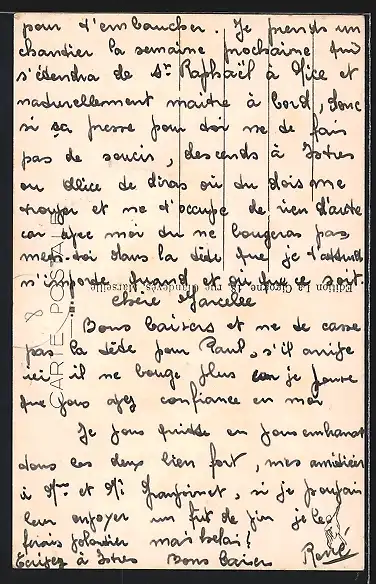 pour t'embaucher. Je prends un
chantier la semaine prochaine qui
s'étendra de St Raphaël à Nice et
naturellement maitre à bord, donc
si ça presse pour toi ne te fais
pas de soucis, descends à Istres
ou Alice te diras où tu dois me
trouver et ne t'occupe de rien d'autre
car avec moi tu ne bougeras pas
mets-toi dans la tête que je t'attends
n'importe quand et où que ce soit.
Chère Marcelle
Bons baisers et ne te casse
pas la tête pour Paul, s'il arrive
ici il ne bouge plus je
que vous ayez confiance en moi
Je vous quitte en vous embrassant
tous les deux bien fort, mes amitiés
à Mme et Mr si je pouvais
leur envoyer un fut de vin je le
ferais volontier mais helas!
Ecrivez à Istres Bons baisers René
CARTE POSTALE
Edition La Cigogne, Marseille